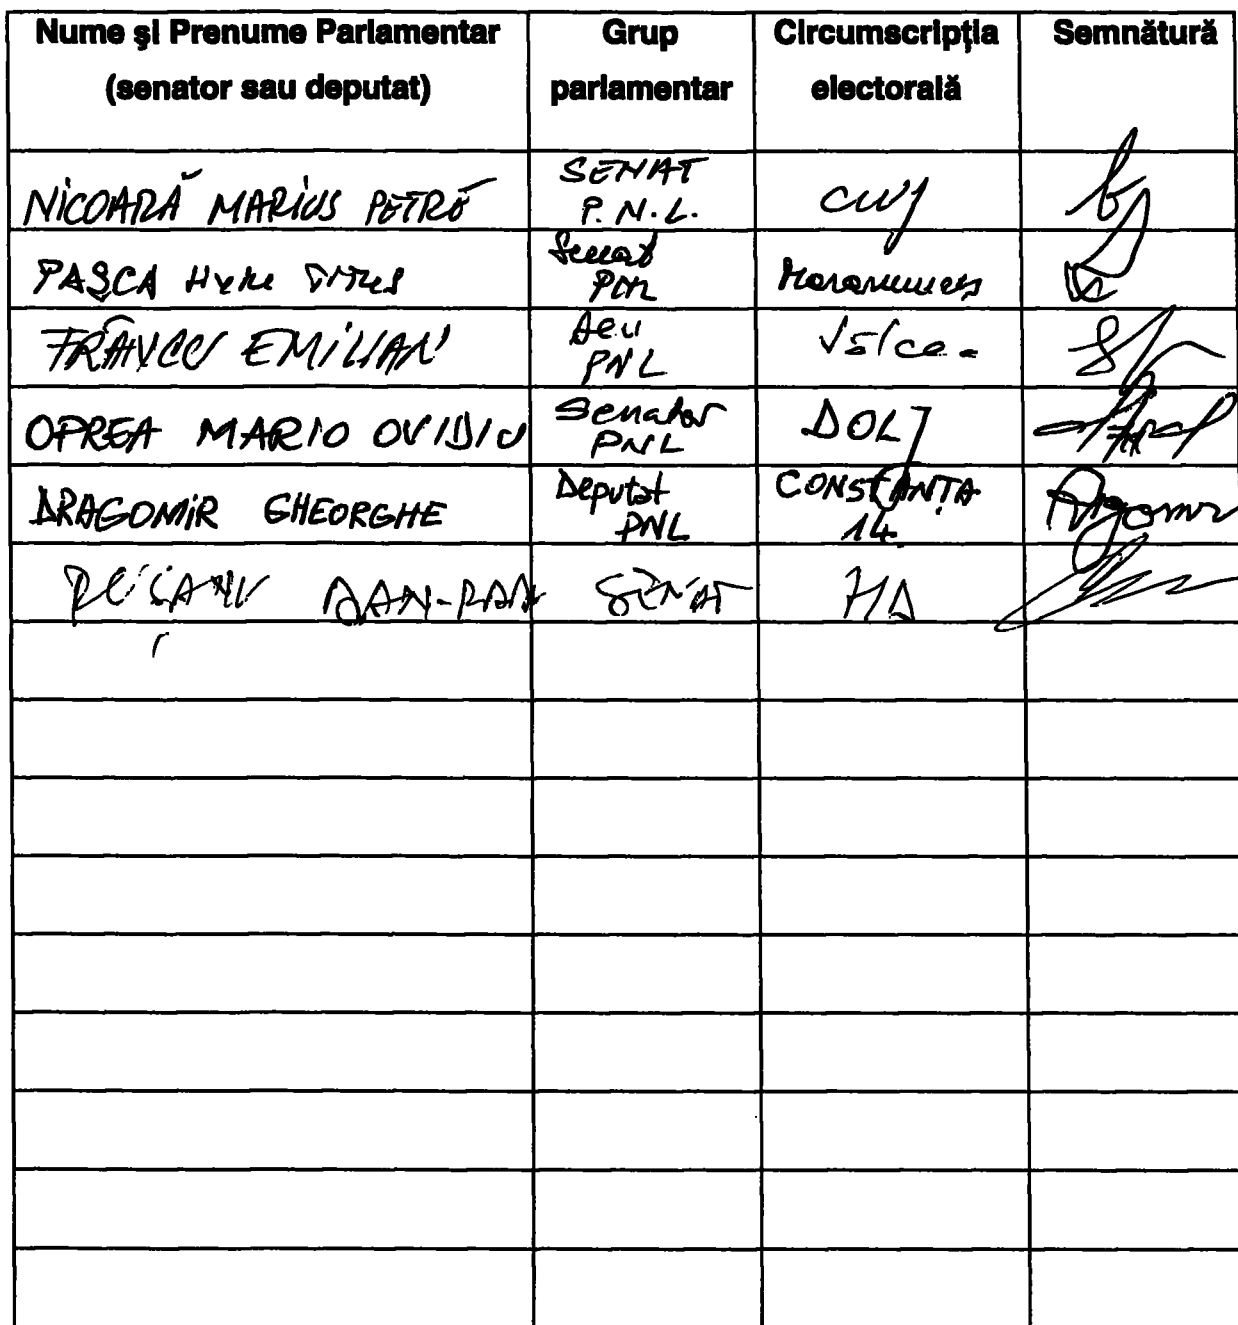 Nume și Prenume Parlamentar
(senator sau deputat)
Grup
parlamentar
Circumscripția
electorală
Semnătură
NICOARĂ MARIUS PETRE
SENAT
P.N.L.
CLUJ
PAȘCA
Senat
PNL
Maramureș
FRÂNCU EMILIAN
PNL
Vâlcea
OPREA MARIO OVIDIU
Senator
PNL
DOLJ
DRAGOMIR GHEORGHE
Deputat
PNL
CONSTANȚA
14.
DAN-RADU
SENAT
HD